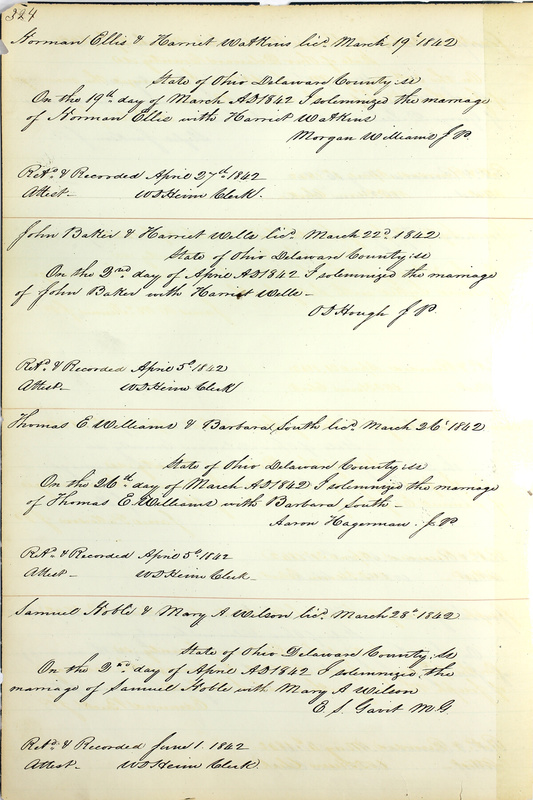 324
Norman Ellis & Harriet Watkins licd. March 19t 1842
State of Ohio Delaware County: ss
On the 19th day of March AD 1842 I solemnized the marriage
of Norman Ellis with Harriet Watkins
Morgan Williams J P.
Retd. & Recorded April 27th 1842
Attest- W D Heim Clerk.
John Baker & Harriet Wells licd. March 22d 1842
State of Ohio Delaware County: ss
On the 2nd day of April AD 1842 I solemnized the marriage
of John Baker with Harriet Wells-
O D Hough J P.
Retd. & Recorded April 5t 1842
Attest- W D Heim Clerk
Thomas E Williams & Barbara South licd. March 26t 1842
State of Ohio Delaware County ss
On the 26th day of March AD 1842 I solemnized the marriage
of Thomas E. Williams with Barbara South-
Aaron Hagerman. J. P.
Retd. & Recorded April 5t 1842
Attest- W D Heim Clerk-
Samuel Noble & Mary A Wilson licd. March 28t 1842
State of Ohio Delaware County: ss
On the 2nd day of April AD 1842 I solemnized the
marriage of Samuel Noble with Mary A Wilson
E S. Gavit M. G
Retd. & Recorded June 1. 1842
Attest- W D Heim Clerk.